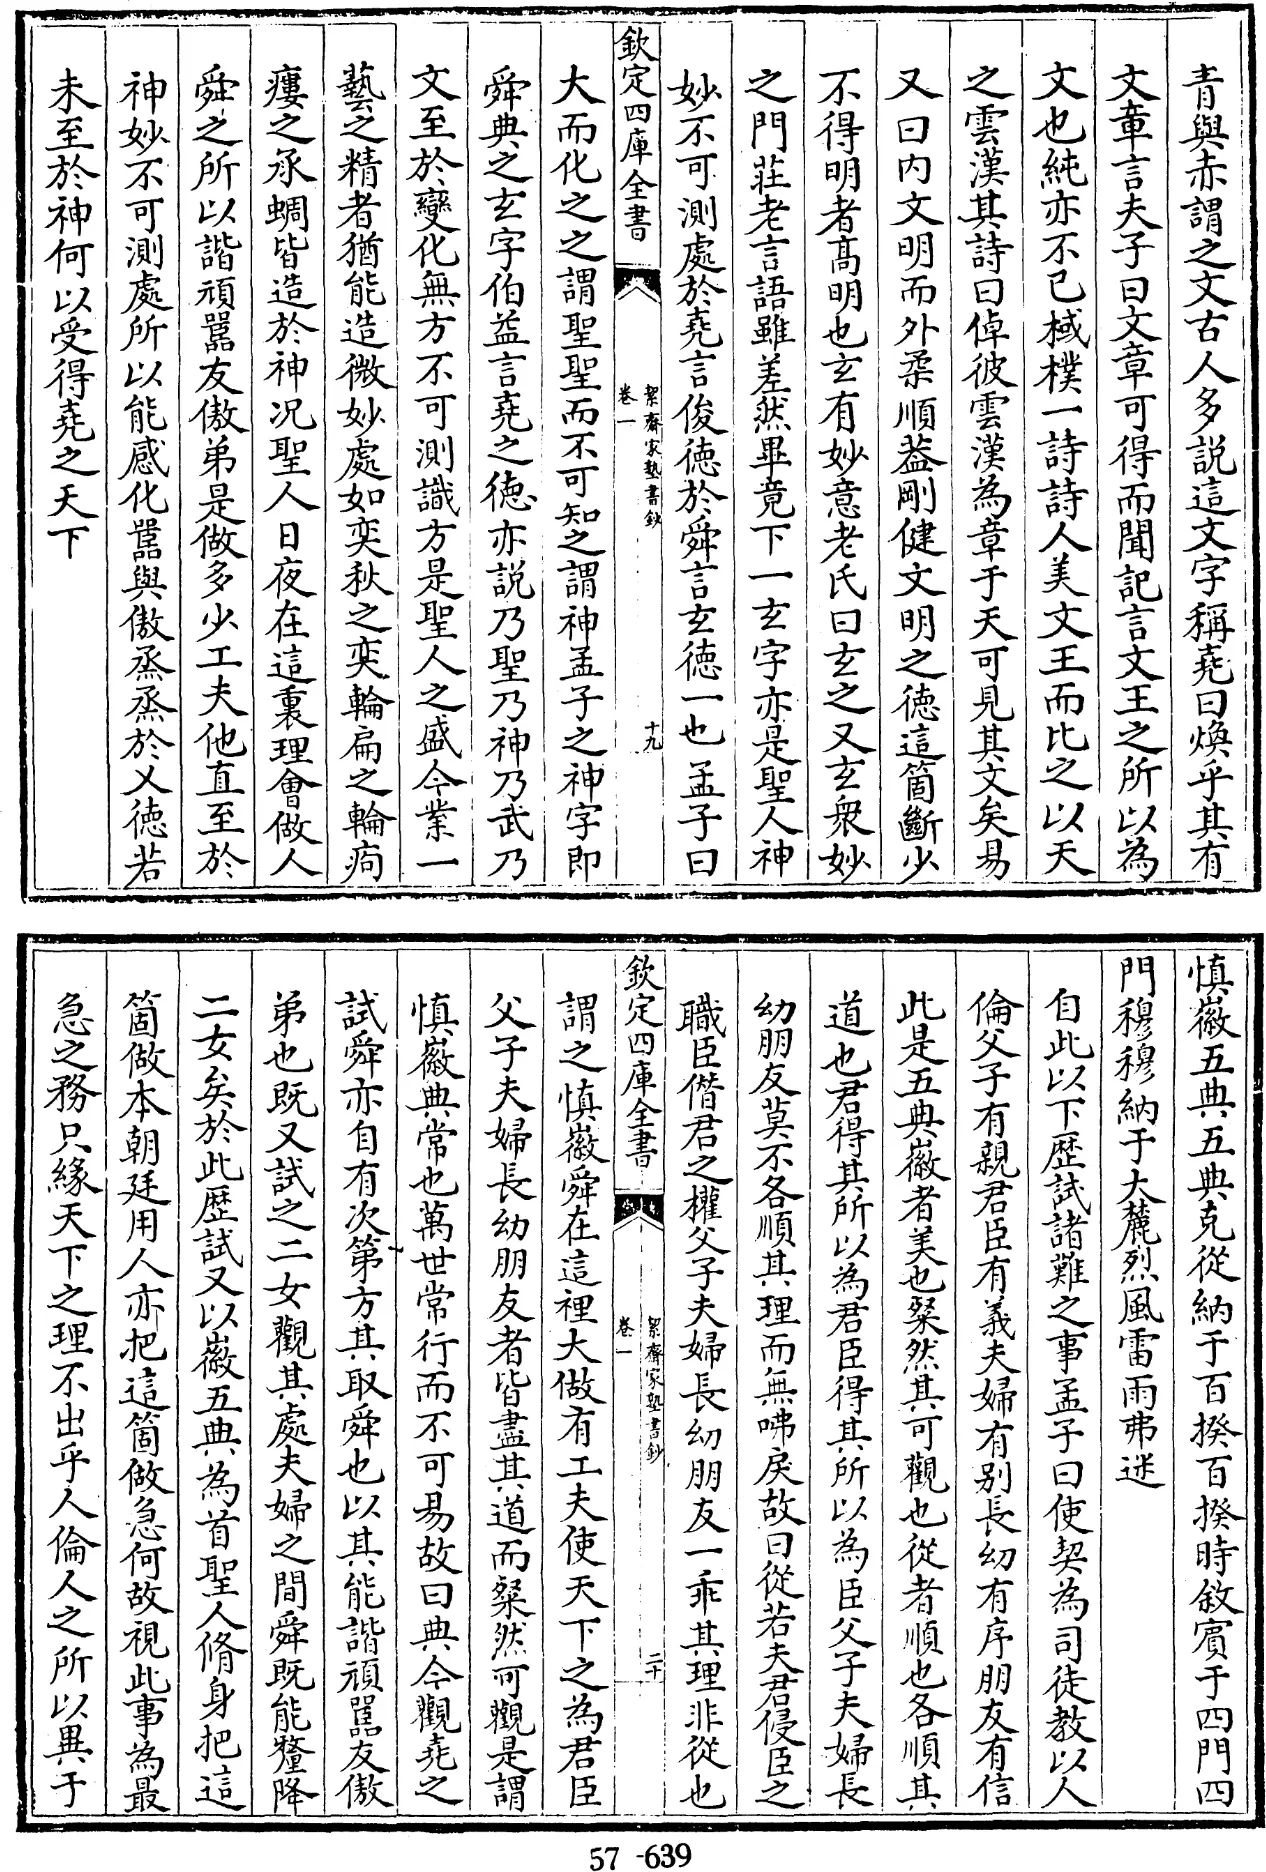 青與赤謂之文古人多説這文字稱堯曰煥乎其有
文章言夫子曰文章可得而聞記言文王之所以為
文也純亦不已棫樸一詩詩人美文王而比之以天
之雲漢其詩曰倬彼雲漢為章于天可見其文矣易
又曰内文明而外柔順葢剛健文明之徳這箇斷少
不得明者髙明也玄有妙意老氏曰玄之又玄衆妙
之門莊老言語雖差然畢竟下一玄字亦是聖人神
妙不可測處於堯言俊徳於舜言玄徳一也孟子曰
欽定四庫全書
絜齋家塾書鈔
卷一
十九
大而化之之謂聖聖而不可知之謂神孟子之神字即
舜典之玄字伯益言堯之徳亦説乃聖乃神乃武乃
文至於變化無方不可測識方是聖人之盛今業一
藝之精者猶能造微妙處如奕秋之奕輪扁之輪痀
瘻之承蜩皆造於神况聖人日夜在這裏理會做人
舜之所以諧頑嚚友傲弟是做多少工夫他直至於
神妙不可測處所以能感化嚚與傲烝烝於乂徳若
未至於神何以受得堯之天下
慎徽五典五典克從納于百揆百揆時敘賓于四門四
門穆穆納于大麓烈風雷雨弗迷
自此以下歴試諸難之事孟子曰使契為司徒教以人
倫父子有親君臣有義夫婦有别長幼有序朋友有信
此是五典徽者美也粲然其可觀也從者順也各順其
道也君得其所以為君臣得其所以為臣父子夫婦長
幼朋友莫不各順其理而無咈戾故曰從若夫君侵臣之
職臣僭君之權父子夫婦長幼朋友一乖其理非從也
欽定四庫全書
絜齋家塾書鈔
卷一
二十
謂之慎徽舜在這裡大做有工夫使天下之為君臣
父子夫婦長幼朋友者皆盡其道而粲然可觀是謂
慎徽典常也萬世常行而不可易故曰典今觀堯之
試舜亦自有次第方其取舜也以其能諧頑嚚友傲
弟也既又試之二女觀其處夫婦之間舜既能釐降
二女矣於此歴試又以徽五典為首聖人脩身把這
箇做本朝廷用人亦把這箇做急何故視此事為最
急之務只緣天下之理不出乎人倫人之所以異于
57-639